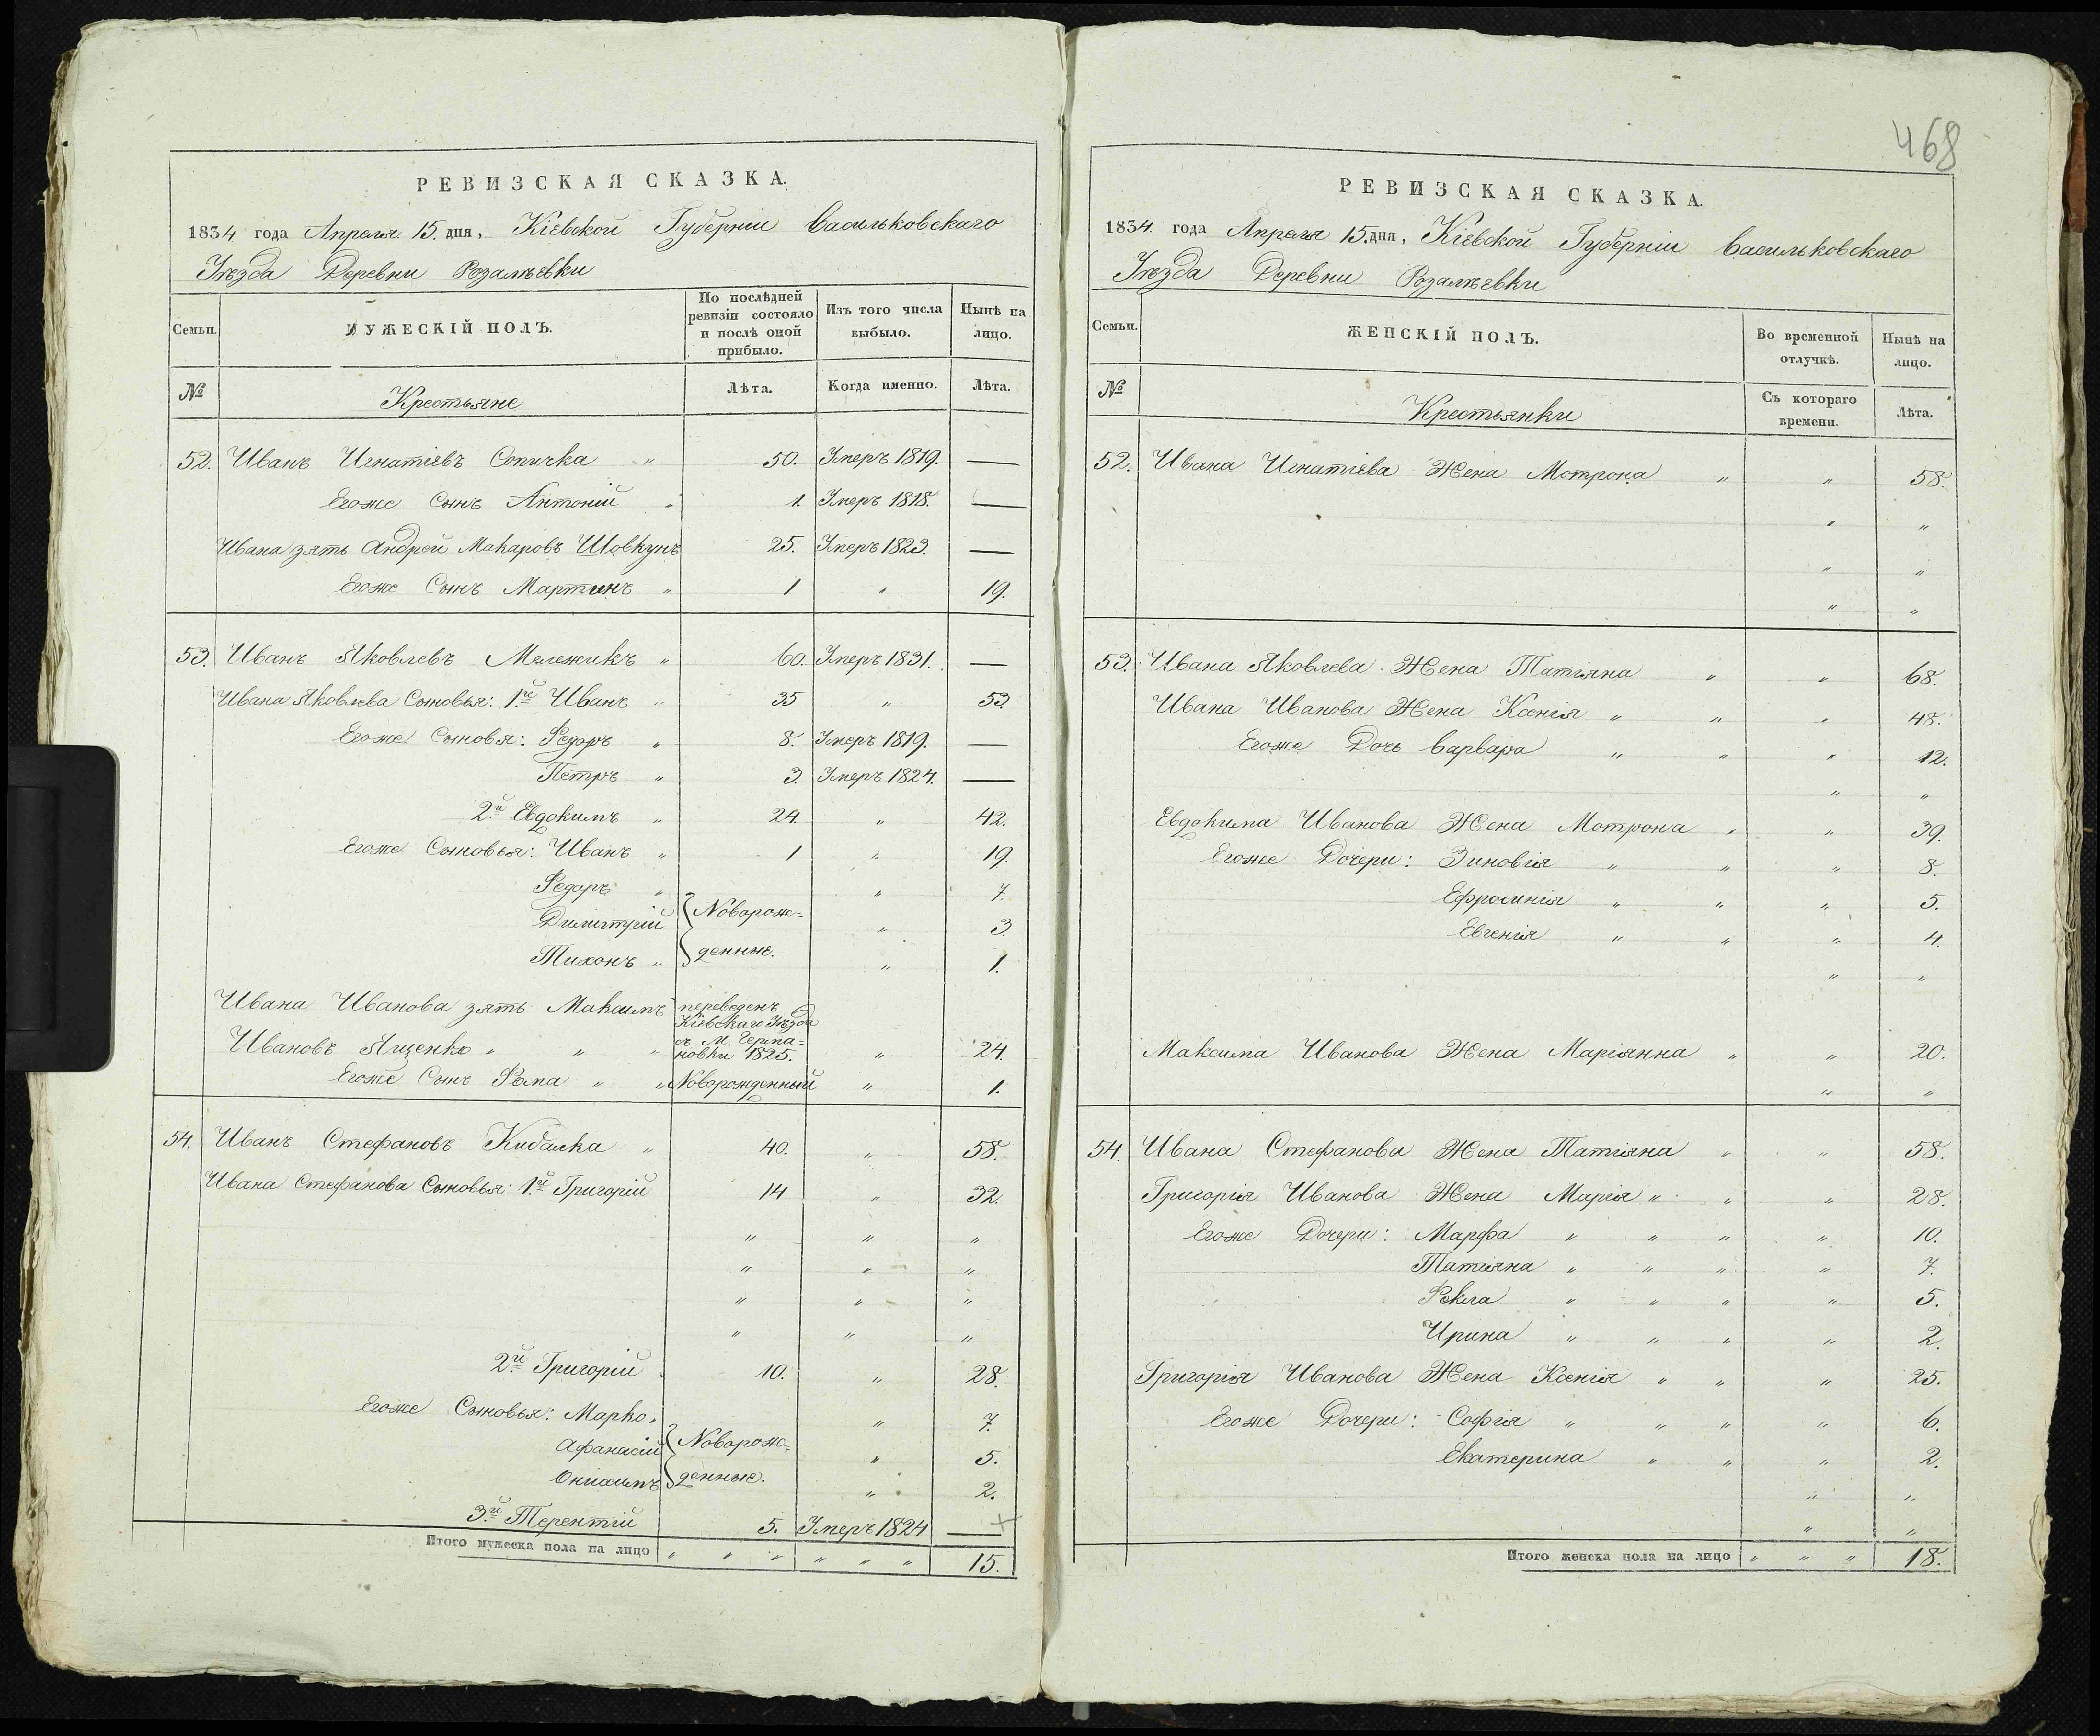 РЕВИЗСКАЯ СКАЗКА.
1834 года Апреля 15. дня, Кіевской Губерніи Васильковскаго
Уѣзда Деревни Розалѣевки
Семьи. МУЖЕСКІЙ ПОЛЪ. По послѣдней ревизіи состояло и послѣ оной прибыло. Изъ того числа выбыло. Нынѣ на лицо.
№ Крестьяне Лѣта. Когда именно. Лѣта.
52. Иванъ Игнатіевъ Сопичка " 50. Умеръ 1819. —
Егоже Сынъ Антоній " 1. Умеръ 1818. —
Ивана зять Андрей Макаровъ Шовкунъ 25. Умеръ 1823. —
Егоже Сынъ Мартинъ " 1 " 19.
53. Иванъ Яковлевъ Мележикъ " 60. Умеръ 1831. —
Ивана Яковлева Сыновья: 1.й Иванъ " 35 " 53.
Егоже Сыновя: Федоръ " 8. Умеръ 1819. —
Петръ " 3. Умеръ 1824. —
2.й Евдокимъ " 24. " 42.
Егоже Сыновья: Иванъ " 1 " 19.
Федоръ " " 7.
Димитрій } Новорож= " 3.
Тихонъ " } денные. " 1.
Ивана Иванова зять Максимъ переведенъ
Кіевскаго Уѣзда
Ивановъ Яценко " " " съ М. Герма=
новки 1825. " 24.
Егоже Сынъ Фома " " Новорожденный " 1.
54. Иванъ Стефановъ Кибалка " 40. " 58.
Ивана Стефанова Сыновья: 1.й Григорій 14 " 32.
" " "
" " "
" " "
" " "
2.й Григорій 10. " 28.
Егоже Сыновья: Марко " " 7.
Афанасій } Новорож= " 5.
Онисимъ } денные. " 2.
3.й Терентій 5. Умеръ 1824 —
Итого мужеска пола на лицо " " " " " " 15.
468
РЕВИЗСКАЯ СКАЗКА.
1834. года Апреля 15. дня, Кіевской Губерніи Васильковскаго
Уѣзда Деревни Розалѣевки
Семьи. ЖЕНСКІЙ ПОЛЪ. Во временной отлучкѣ. Нынѣ на лицо.
№ Крестьянки Съ котораго времени. Лѣта.
52. Ивана Игнатіева Жена Мотрона " " 58.
" "
" "
" "
53. Ивана Яковлева Жена Татіяна " " 68.
Ивана Иванова Жена Ксенія " " " 48.
Егоже Дочь Варвара " " " 12.
" "
Евдокима Иванова Жена Мотрона " " 39.
Егоже Дочери: Зиновія " " " 8.
Ефросинія " " " 5.
Евгенія " " " 4.
" "
Максима Иванова Жена Маріянна " " 20.
" "
54. Ивана Стефанова Жена Татіяна " " 58.
Григорія Иванова Жена Марія " " " 28.
Егоже Дочери: Марфа " " " " 10.
Татіяна " " " " 7.
Фекла " " " " 5.
Ирина " " " " 2.
Григорія Иванова Жена Ксенія " " " 25.
Егоже Дочери: Софія " " " " 6.
Екатерина " " " 2.
" "
" "
Итого женска пола на лицо " " " 18.